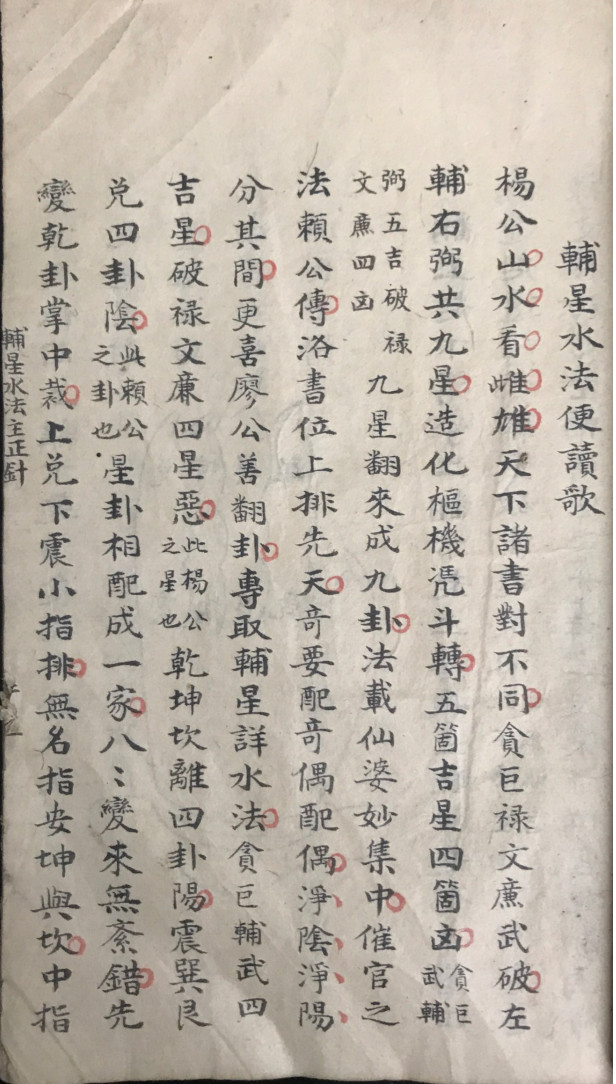 輔星水法便讀歌
楊公山水看雌雄天下諸書對不同貪巨禄文廉武破左
輔右弼共九星造化樞機凴斗轉五箇吉星四箇凶貪巨武輔
弼五吉破禄文廉四凶九星翻來成九卦法載仙婆妙集中催官之
法賴公傳洛書位上排先天竒要配竒偶配偶淨陰淨陽
分其間更喜廖公善翻卦專取輔星詳水法貪巨輔武四
吉星破禄文廉四星惡此楊公之星也乾坤坎離四卦陽震巽艮
兑四卦陰此賴公之卦也星卦相配成一家八〻變來無紊錯先
變乾卦掌中裁上兑下震小指排無名指安坤與坎中指
輔星水法主正針